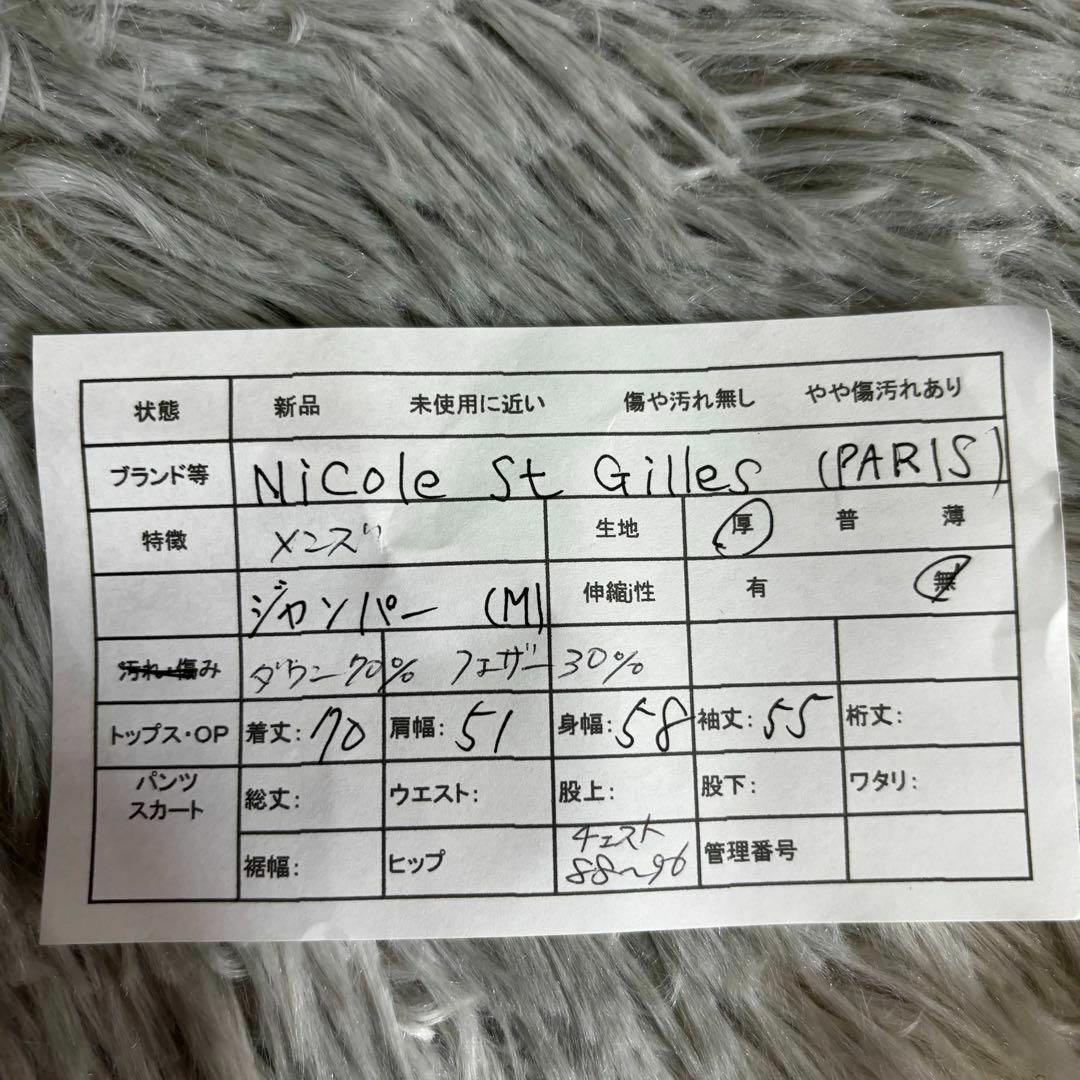 状態 新品 未使用に近い 傷や汚れ無し やや傷汚れあり
ブランド等 Nicole St Gilles (PARIS)
特徴 メンズ 生地 厚 普 薄
ジャンパー (M) 伸縮j性 有 無
汚れ・傷み ダウン70% フェザー30%
トップス・OP 着丈:70 肩幅:51 身幅:58 袖丈:55 桁丈:
パンツ スカート 総丈: ウエスト: 股上: 股下: ワタリ:
裾幅: ヒップ チェスト 88~96 管理番号